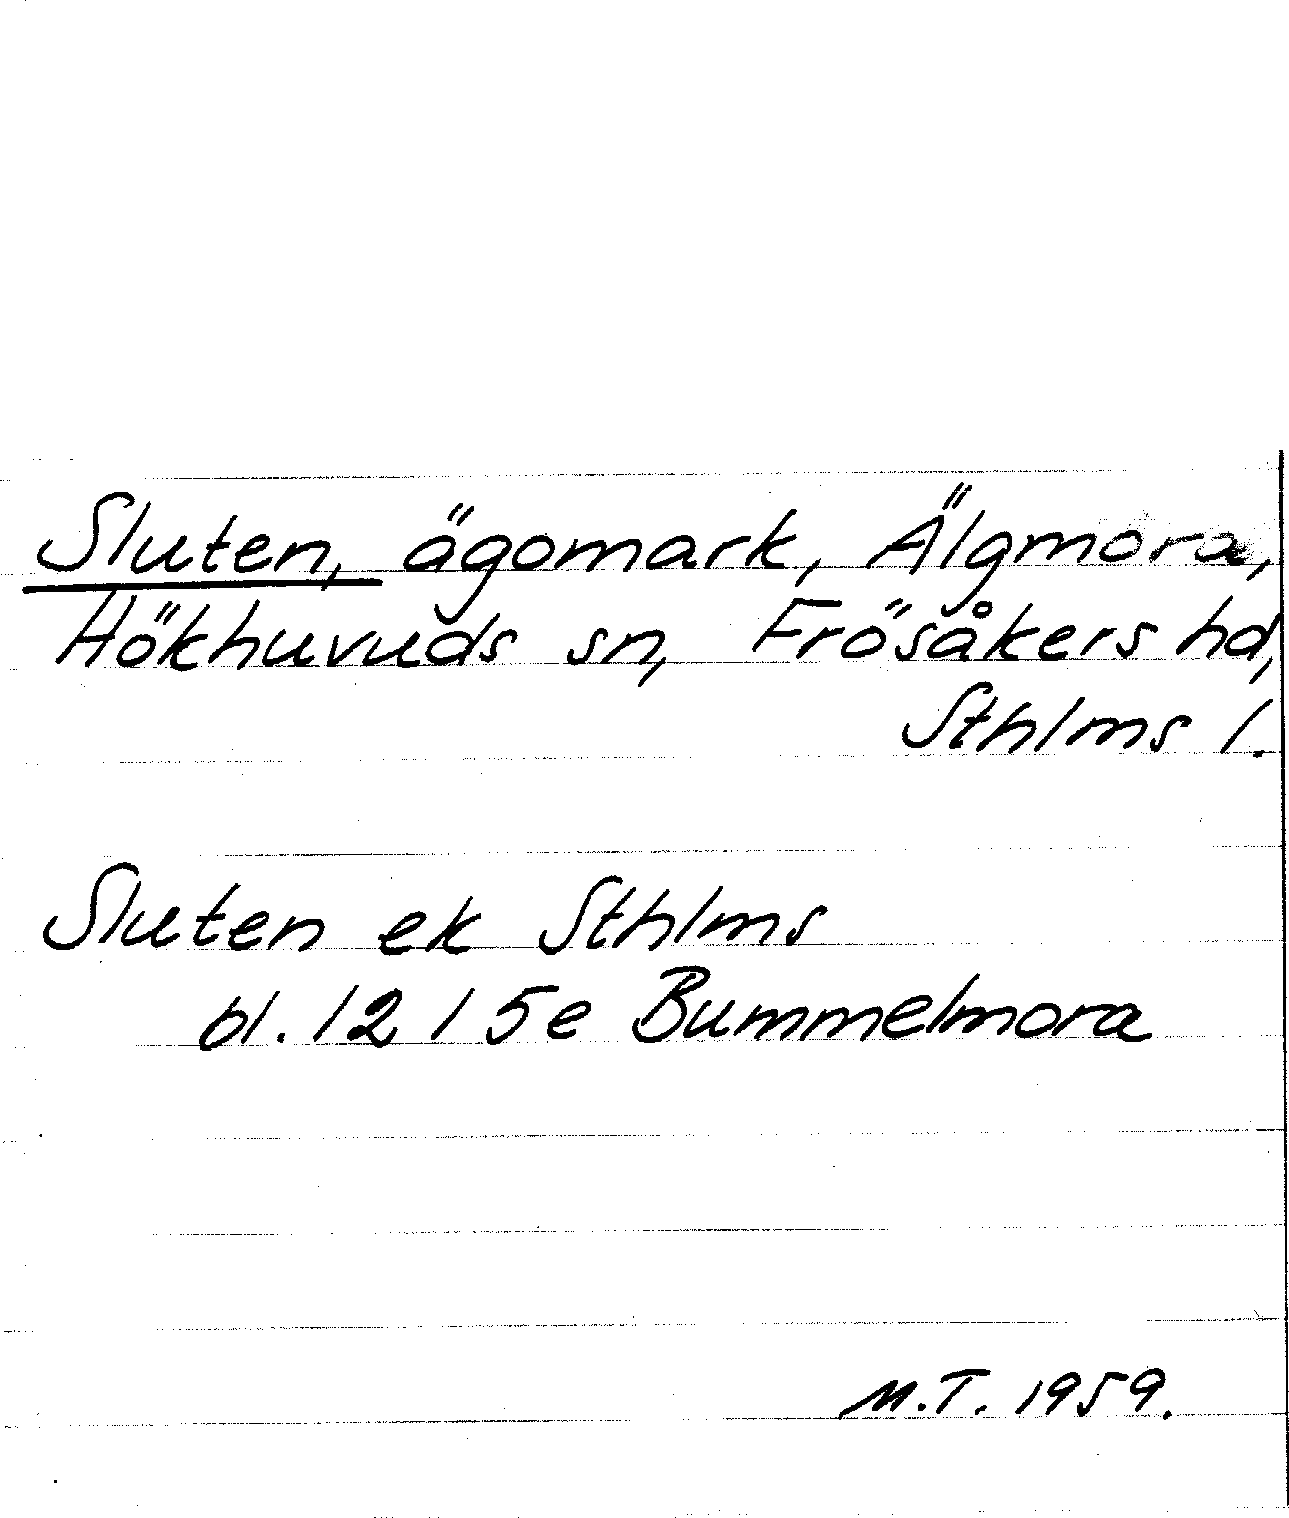 Sluten, ägomark, Älgmora,
Hökhuvuds sn, Frösåkers hd,
Sthlms l.
Sluten ek Sthlms
bl. 12 I 5e Bummelmora
M.T. 1959.